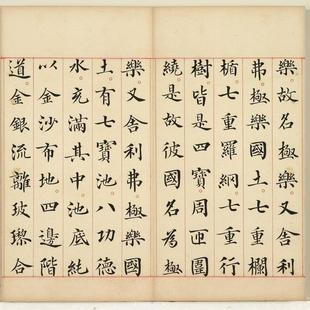 樂故名極樂又舍利
弗極樂國土七重欄
楯七重羅網七重行
樹皆是四寶周匝圍
繞是故彼國名為極
樂又舍利弗極樂國
土有七寶池八功德
水充滿其中池底純
以金沙布地四邊階
道金銀流離玻瓈合